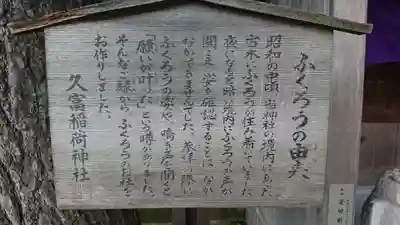 ふくろうの由来
昭和の中頃、当神社の境内にあった
古木にふくろうが住み着いていました。
夜になると暗い境内にふくろうの声が
聞こえ、姿を確認することは、なか
なかできませんでした。参拝の際に
ふくろうの姿や、鳴き声を聞くと
「願いが叶った」という時がありました。
そんなご縁から、ふくろうのお社を
お作りしました。
久富稲荷神社